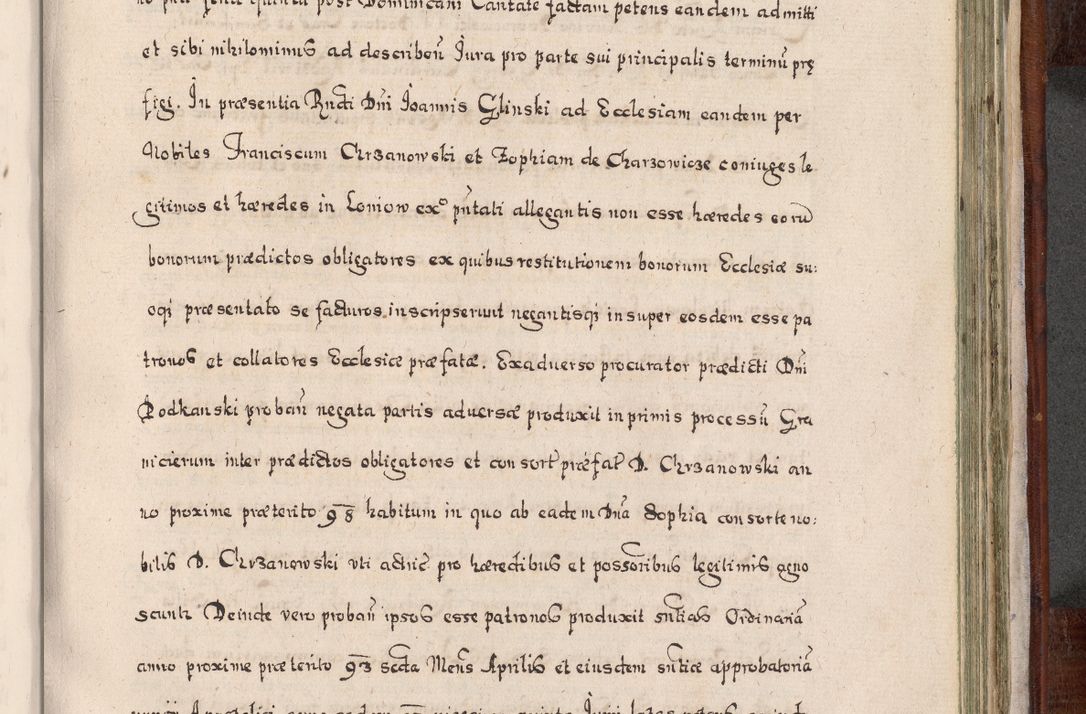 post Dominicam Cantate factam petens eandem admitti
et sibi nihilominus ad describen̄ Jura pro parte sui principalis terminū prę
figi. In præsentia Rndi Dñi Joannis Glinski ad Ecclesiam eandem per
Nobiles Franciscum Chrzanowski et Zophiam de Charzowicze coniuges le
gitimos et hæredes in Loniow exº pñtati allegantis non esse hæredes eorū
bonorum prædictos obligatores ex quibus restitutionem bonorum Ecclesiæ su:
oqȝ præsentato se facturos inscripserunt negantisqȝ insuper eosdem esse pa
tronos et collatores Ecclesiæ præfatæ. Exaduerso procurator prædicti Dñi
Podkanski proban̄ negata partis aduersæ produxit inprimis processū Gra
nicierum inter prædictos obligatores et consort præfat D. Chrzanowski an
no proxime præterito 98 habitum in quo ab eadem Dnã Sophia consorte no:
bilis D. Chrzanowski vti actric̃ pro hæredibus et possoribus legitimis agno
scunt Deinde vero proban̄ ipsos esse patronos produxit sntias Ordinariã
anno proxime præterito 93 secda Mens Aprilis et eiusdem sntiæ approbatoriã